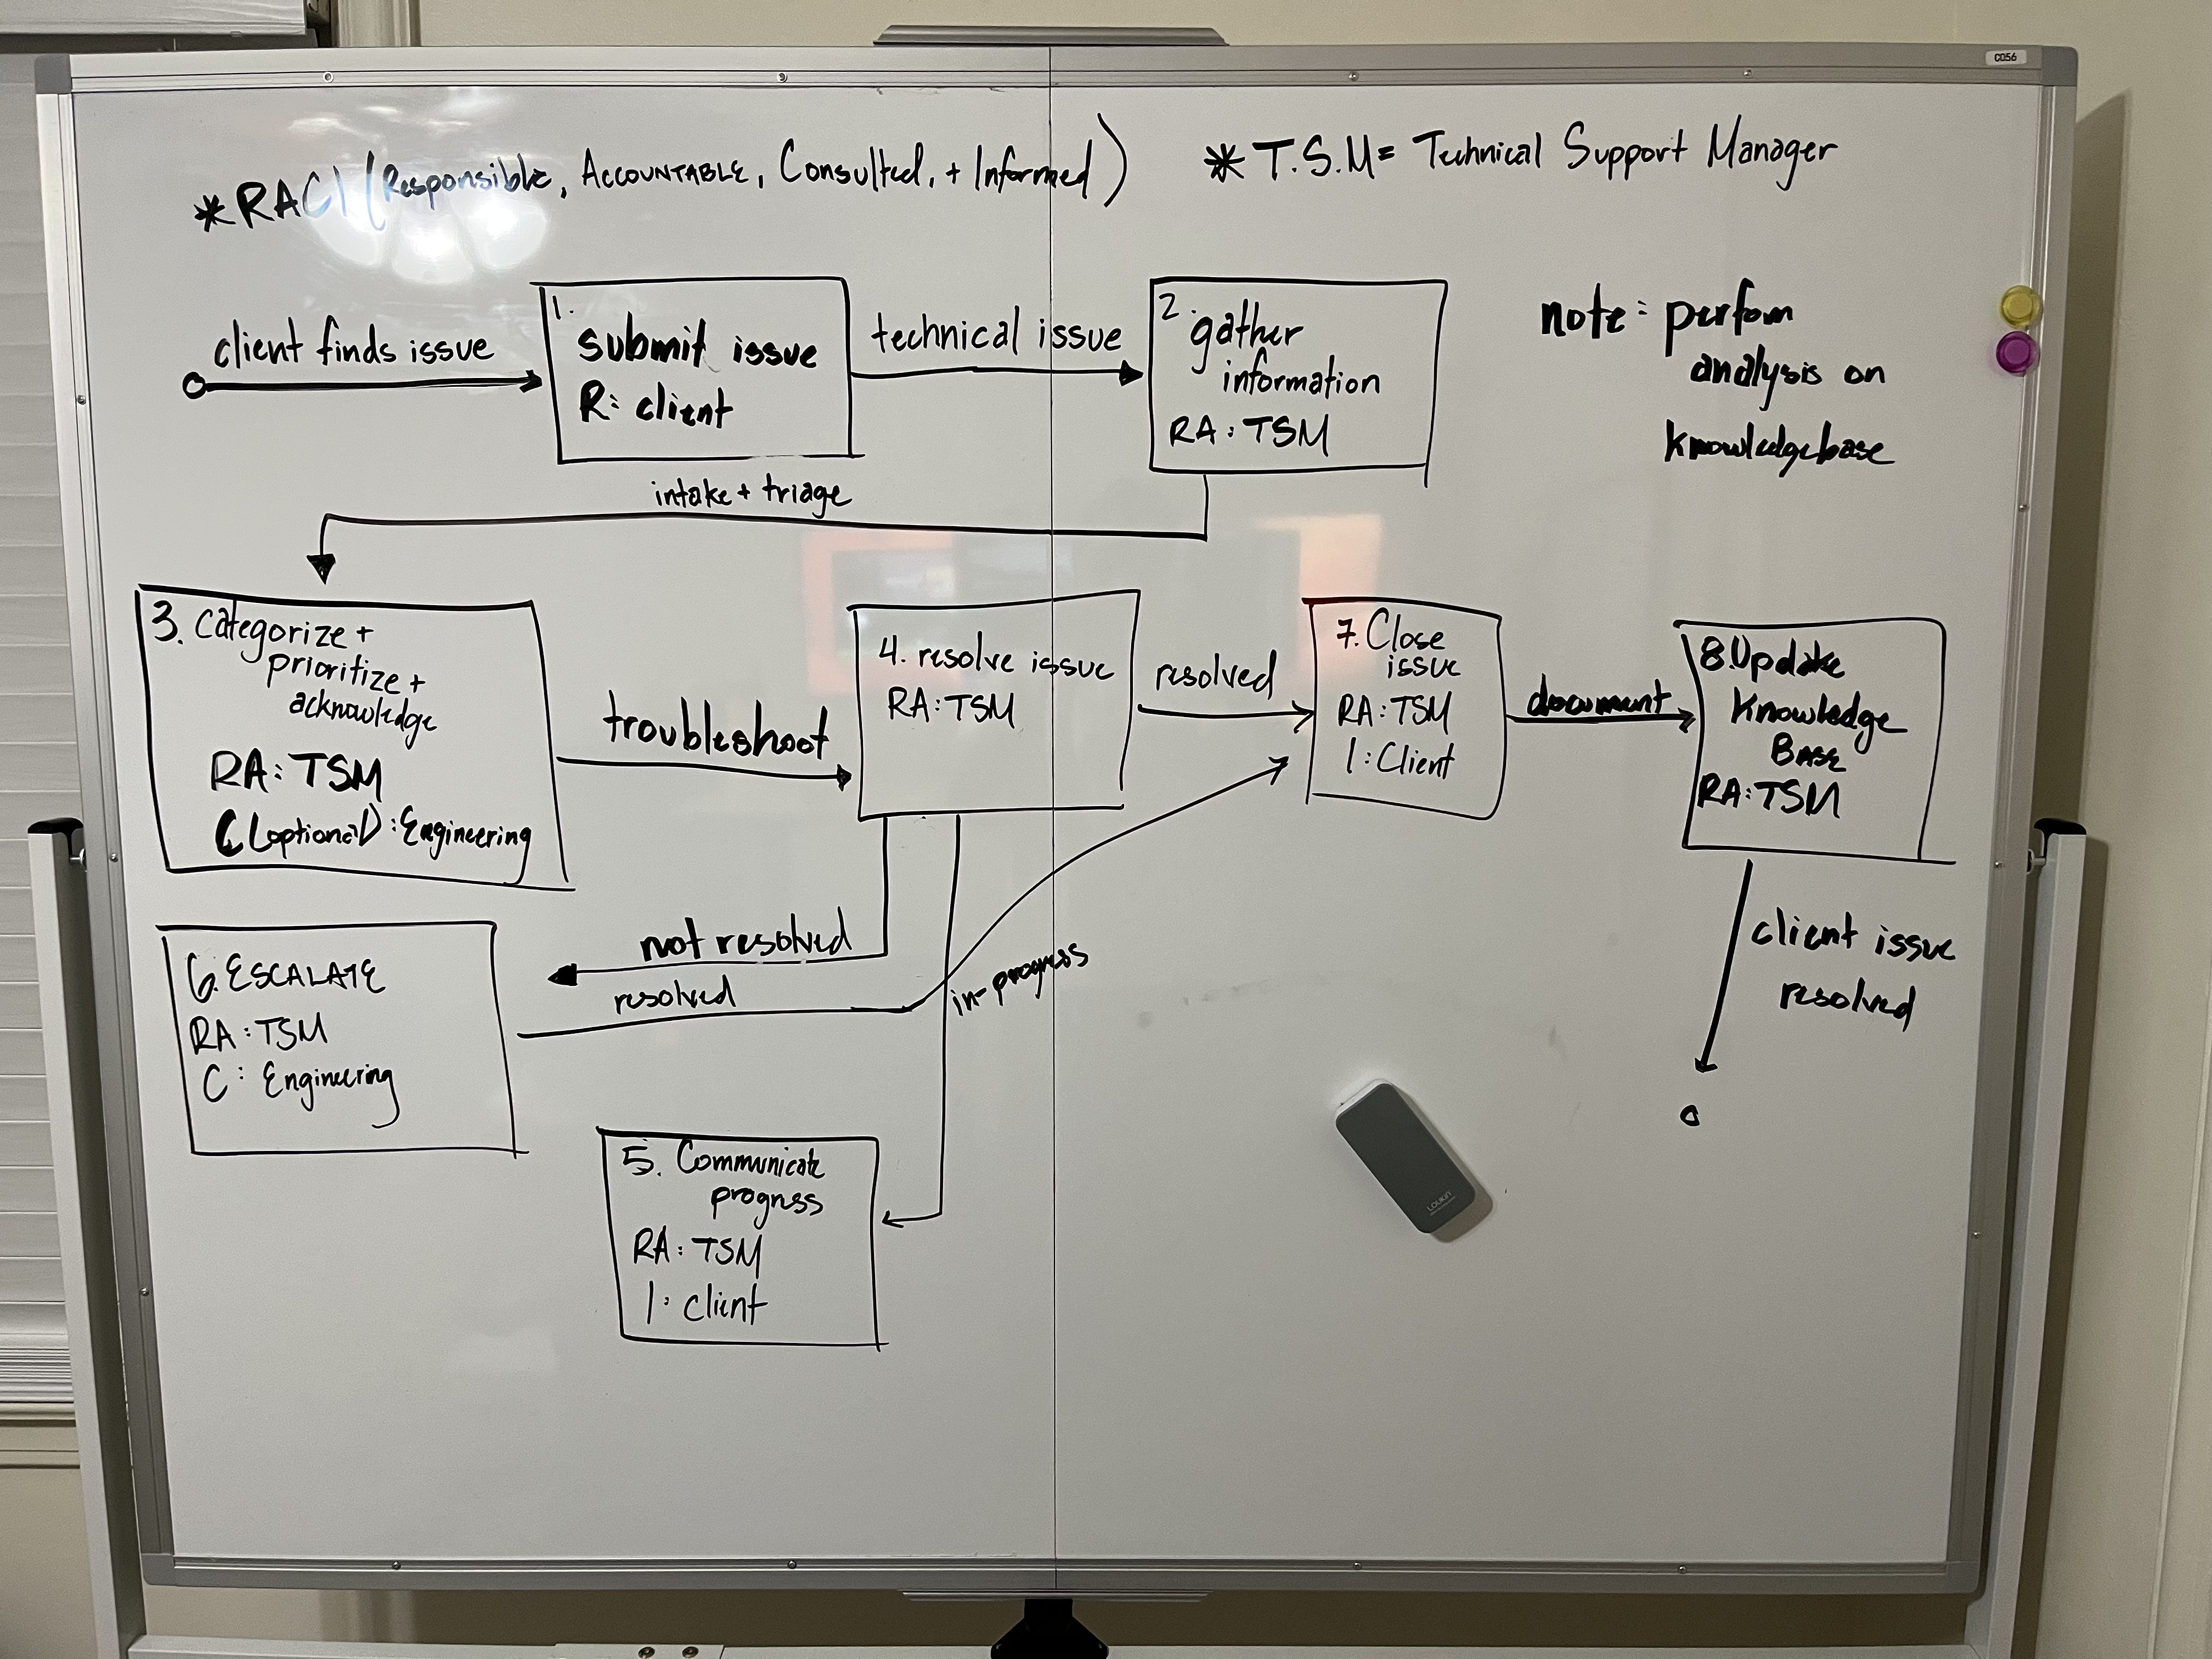 *RACI (Responsible, ACCOUNTABLE, Consulted, + Informed)
*T.S.M= Technical Support Manager
client finds issue
1.
submit issue
R: client
technical issue
2.
gather
information
RA: TSM
note: perfom
analysis on
knowledgebase
intake + triage
3. Categorize +
prioritize +
acknowledge
RA: TSM
C (optional): Engineering
troubleshoot
4. resolve issue
RA: TSM
resolved
7. Close
issue
RA: TSM
I: Client
document
8. Update
Knowledge
BASE
RA: TSM
client issue
resolved
not resolved
resolved
in-progress
6. ESCALATE
RA: TSM
C: Engineering
5. Communicate
progress
RA: TSM
I: client
C056